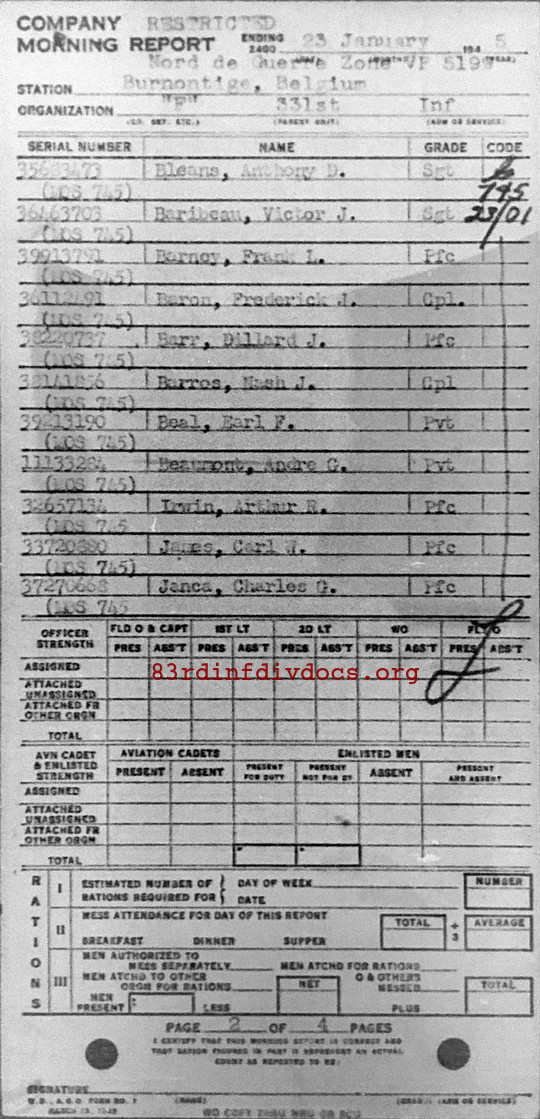 COMPANY RESTRICTED
MORNING REPORT ENDING 2400 23 January 194 5
Nord de Guerre Zone VP 5199
STATION Burnontige, Belgium
ORGANIZATION "F" 331st Inf
(CO. DET. ETC.) (PARENT UNIT) (ARM OR SERVICE)
SERIAL NUMBER NAME GRADE CODE
Bleans, Anthony D. Sgt
(MOS 745) 745
36463703 Baribeau, Victor J. Sgt 23/01
(MOS 745)
39913791 Barney, Frank L. Pfc
(MOS 745)
36112491 Baron, Frederick J. Cpl.
(MOS 745)
38220737 Barr, Dillard J. Pfc
(MOS 745)
38141856 Barros, Nash J. Cpl
(MOS 745)
39213190 Beal, Earl F. Pvt
(MOS 745)
11133284 Beaumont, Andre G. Pvt
(MOS 745)
32657134 Irwin, Arthur R. Pfc
(MOS 745
33720880 James, Carl W. Pfc
(MOS 745)
37270668 Janca, Charles G. Pfc
(MOS 745
OFFICER STRENGTH FLD O & CAPT 1ST LT 2D LT WO FLT O
PRES ABS'T PRES ABS'T PRES ABS'T PRES ABS'T PRES ABS'T
ASSIGNED
83rdinfdivdocs.org
ATTACHED UNASSIGNED
ATTACHED FR OTHER ORGN
TOTAL
AVN CADET & ENLISTED STRENGTH AVIATION CADETS ENLISTED MEN
PRESENT ABSENT PRESENT FOR DUTY PRESENT NOT FOR DY ABSENT PRESENT AND ABSENT
ASSIGNED
ATTACHED UNASSIGNED
ATTACHED FR OTHER ORGN
TOTAL
RATIONS
I ESTIMATED NUMBER OF RATIONS REQUIRED FOR DAY OF WEEK DATE NUMBER
II MESS ATTENDANCE FOR DAY OF THIS REPORT TOTAL ÷ 3 AVERAGE
BREAKFAST DINNER SUPPER
III MEN AUTHORIZED TO MESS SEPARATELY MEN ATCHD FOR RATIONS
MEN ATCHD TO OTHER ORGN FOR RATIONS NET O & OTHERS MESSED TOTAL
MEN PRESENT LESS PLUS
PAGE 2 OF 4 PAGES
I CERTIFY THAT THIS MORNING REPORT IS CORRECT AND
THAT RATION FIGURES IN PART III REPRESENT AN ACTUAL
COUNT AS REPORTED TO ME:
SIGNATURE
W.D., A.G.O. FORM NO. 1 (NAME) (GRADE) (ARM OR SERVICE)
WD COPY THRU MRU OR SCU